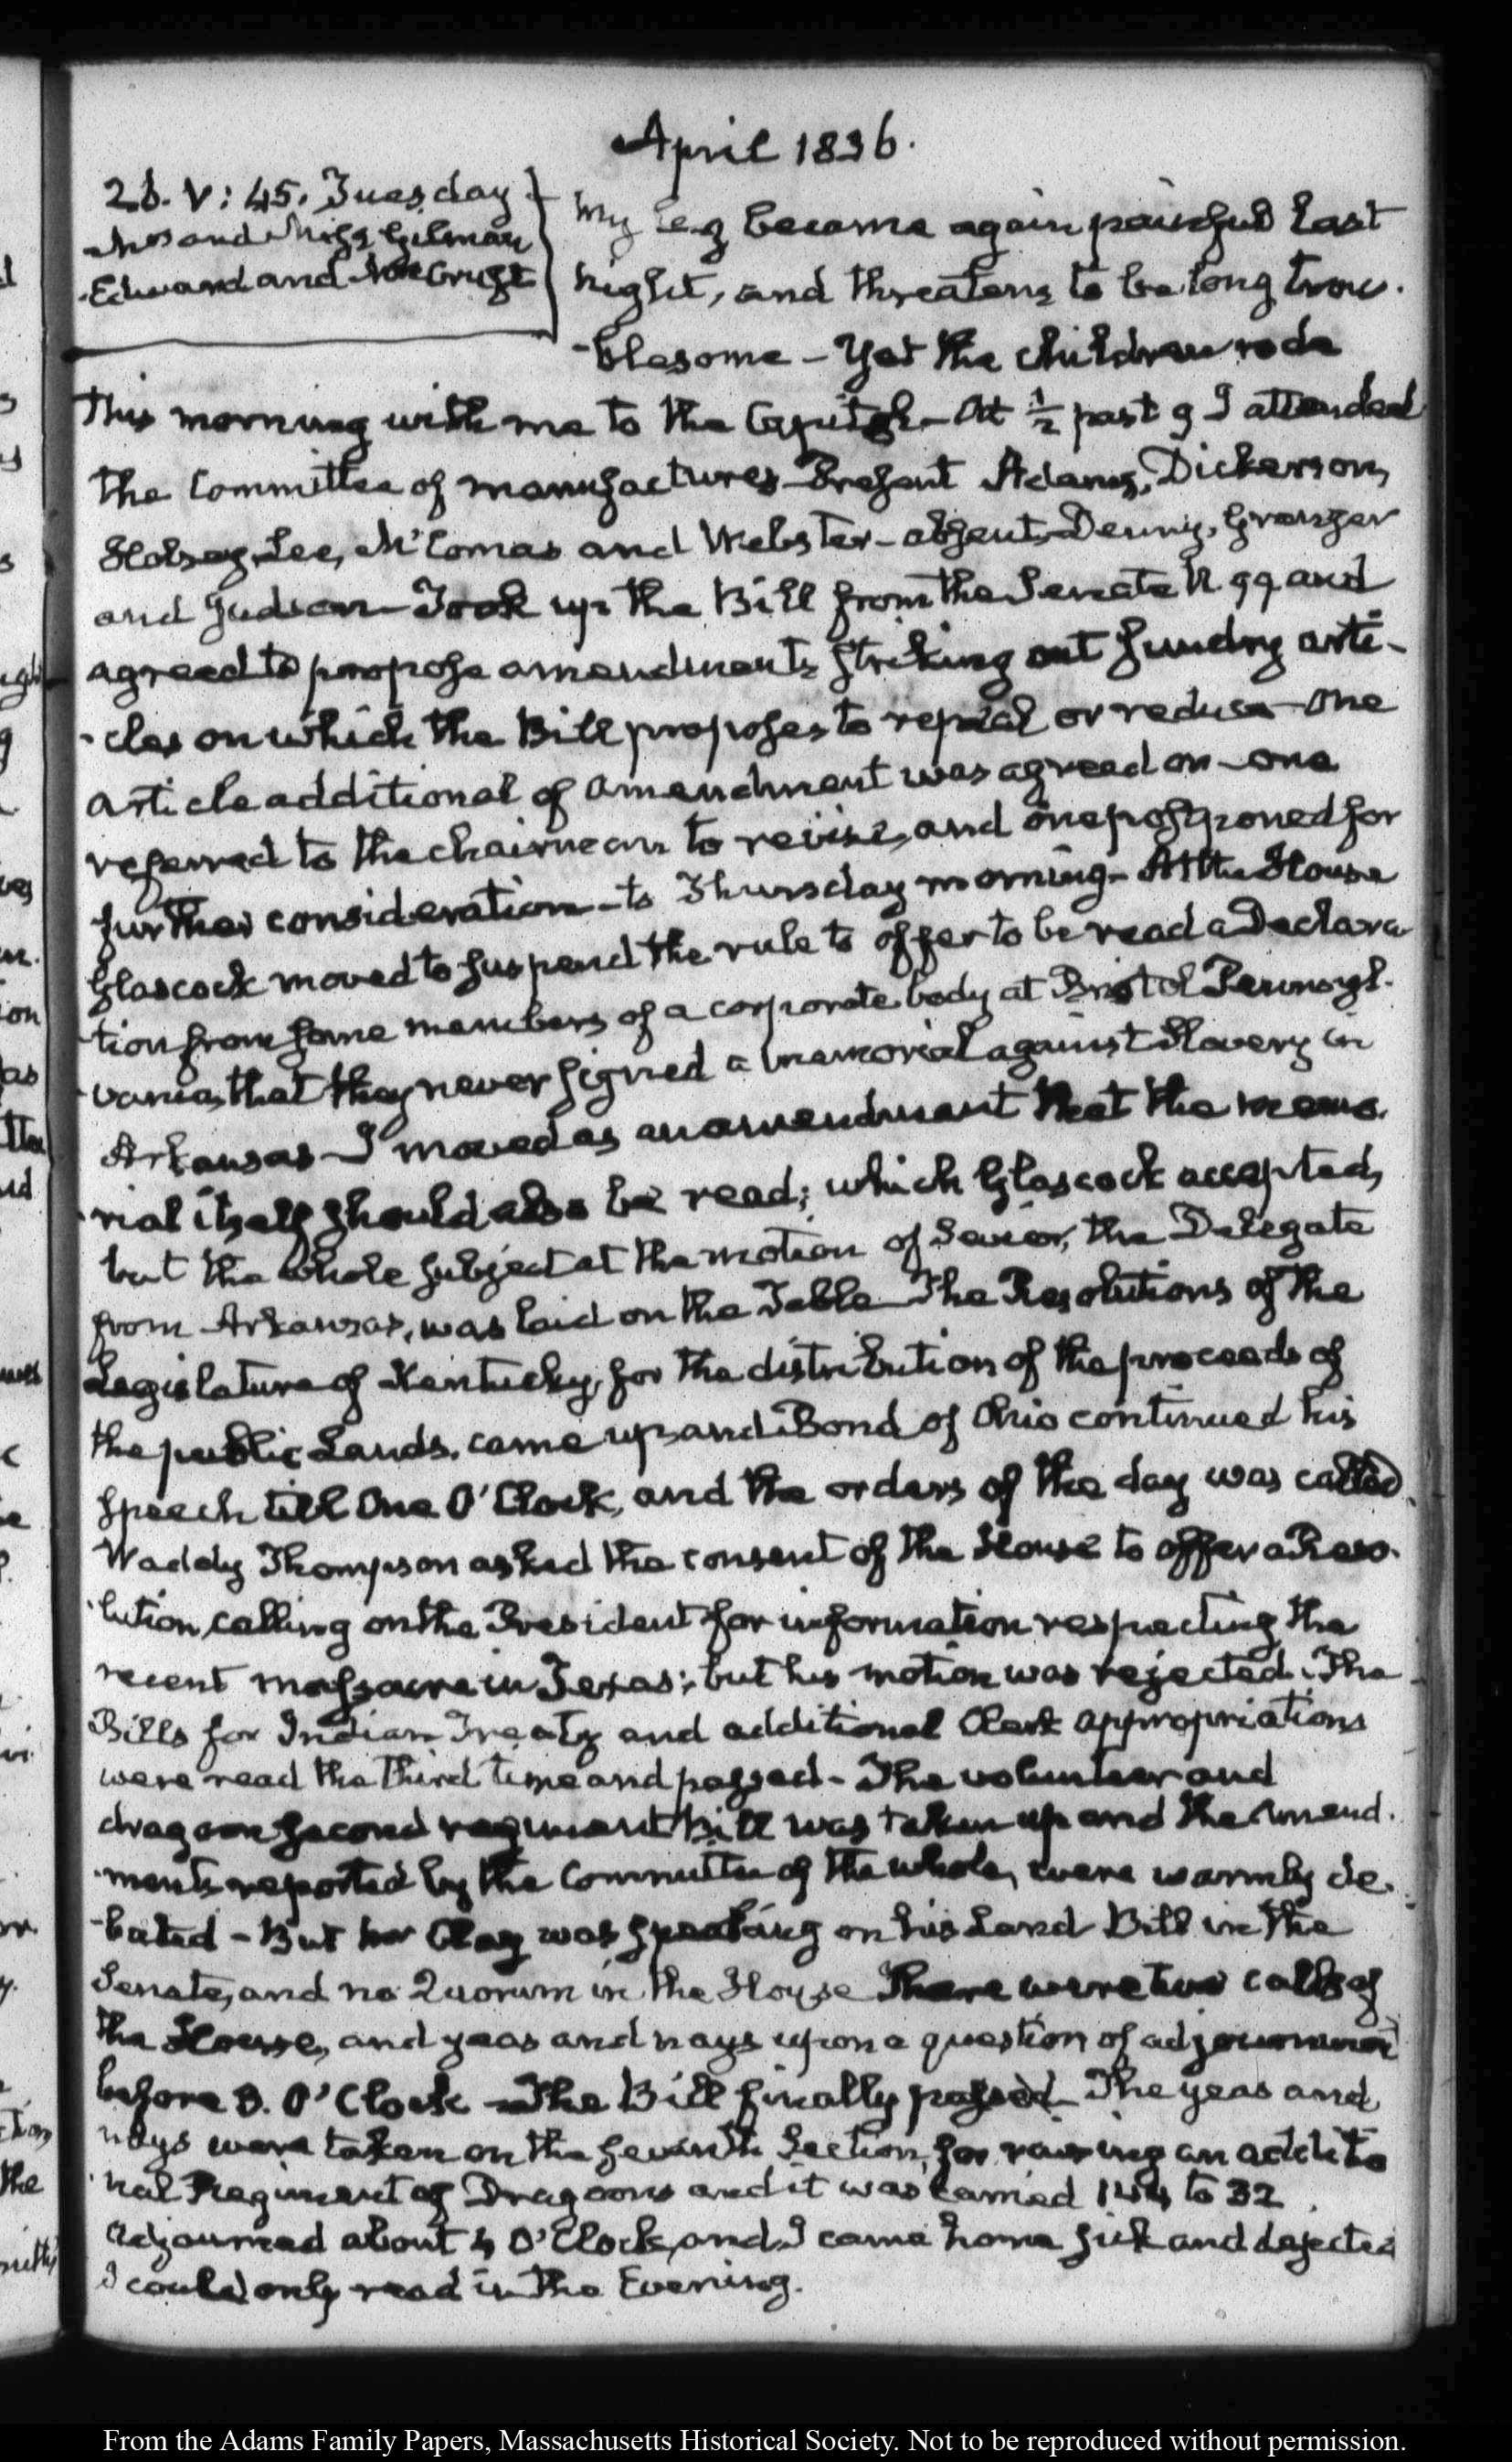 April 1836.
26. V: 45. Tuesday
Mrs and Miss Gilman
Edward and
My leg became again painful last
night, and threatens to be long trou-
-blesome - Yet the children rode
this morning with me to the Capitol - At ½ past 9 I attended
the Committee of manufactures - Present Adams, Dickerson,
Halsey, Lee, McComas and Webster - absent, Denny, Granger
and Judson - Took up the Bill from the Senate N. 99 and
agreed to propose amendments striking out sundry arti-
-cles on which the Bill proposes to repeal or reduce - One
article additional of amendment was agreed on - one
referred to the chairman to revise, and one postponed for
further consideration - to Thursday morning - At the House
Glascock moved to suspend the rule to offer to be read a Declara
-tion from some members of a corporate body at Bristol Pennsyl-
-vania, that they never signed a memorial against Slavery in
Arkansas - I moved as an amendment that the memo-
-rial itself should also be read; which Glascock accepted,
but the whole subject at the motion of Sevier, the Delegate
from Arkansas, was laid on the Table - The Resolutions of the
Legislature of Kentucky, for the distribution of the proceeds of
the public Lands, came up, and Bond of Ohio continued his
speech till One O'Clock, and the orders of the day was called
Waddy Thompson asked the consent of the House to offer a Reso-
-lution, calling on the President for information respecting the
recent massacre in Texas; but his motion was rejected. The
Bills for Indian Treaty and additional Clerk appropriations
were read the third time and passed - The volunteer and
dragoon second regiment bill was taken up and the Amend-
-ments reported by the Committee of the whole, were warmly de-
-bated - But Mr Clay was speaking on his Land Bill in the
Senate, and no Quorum in the House There were two calls of
the House, and yeas and nays upon a question of adjournment
before 3. O'Clock - The Bill finally passed - The yeas and
nays were taken on the seventh Section, for raising an additio
-nal Regiment of Dragoons and it was carried 144 to 32
Adjourned about 4 O'Clock, and I came home sick and dejected
I could only read in the Evening.
From the Adams Family Papers, Massachusetts Historical Society. Not to be reproduced without permission.